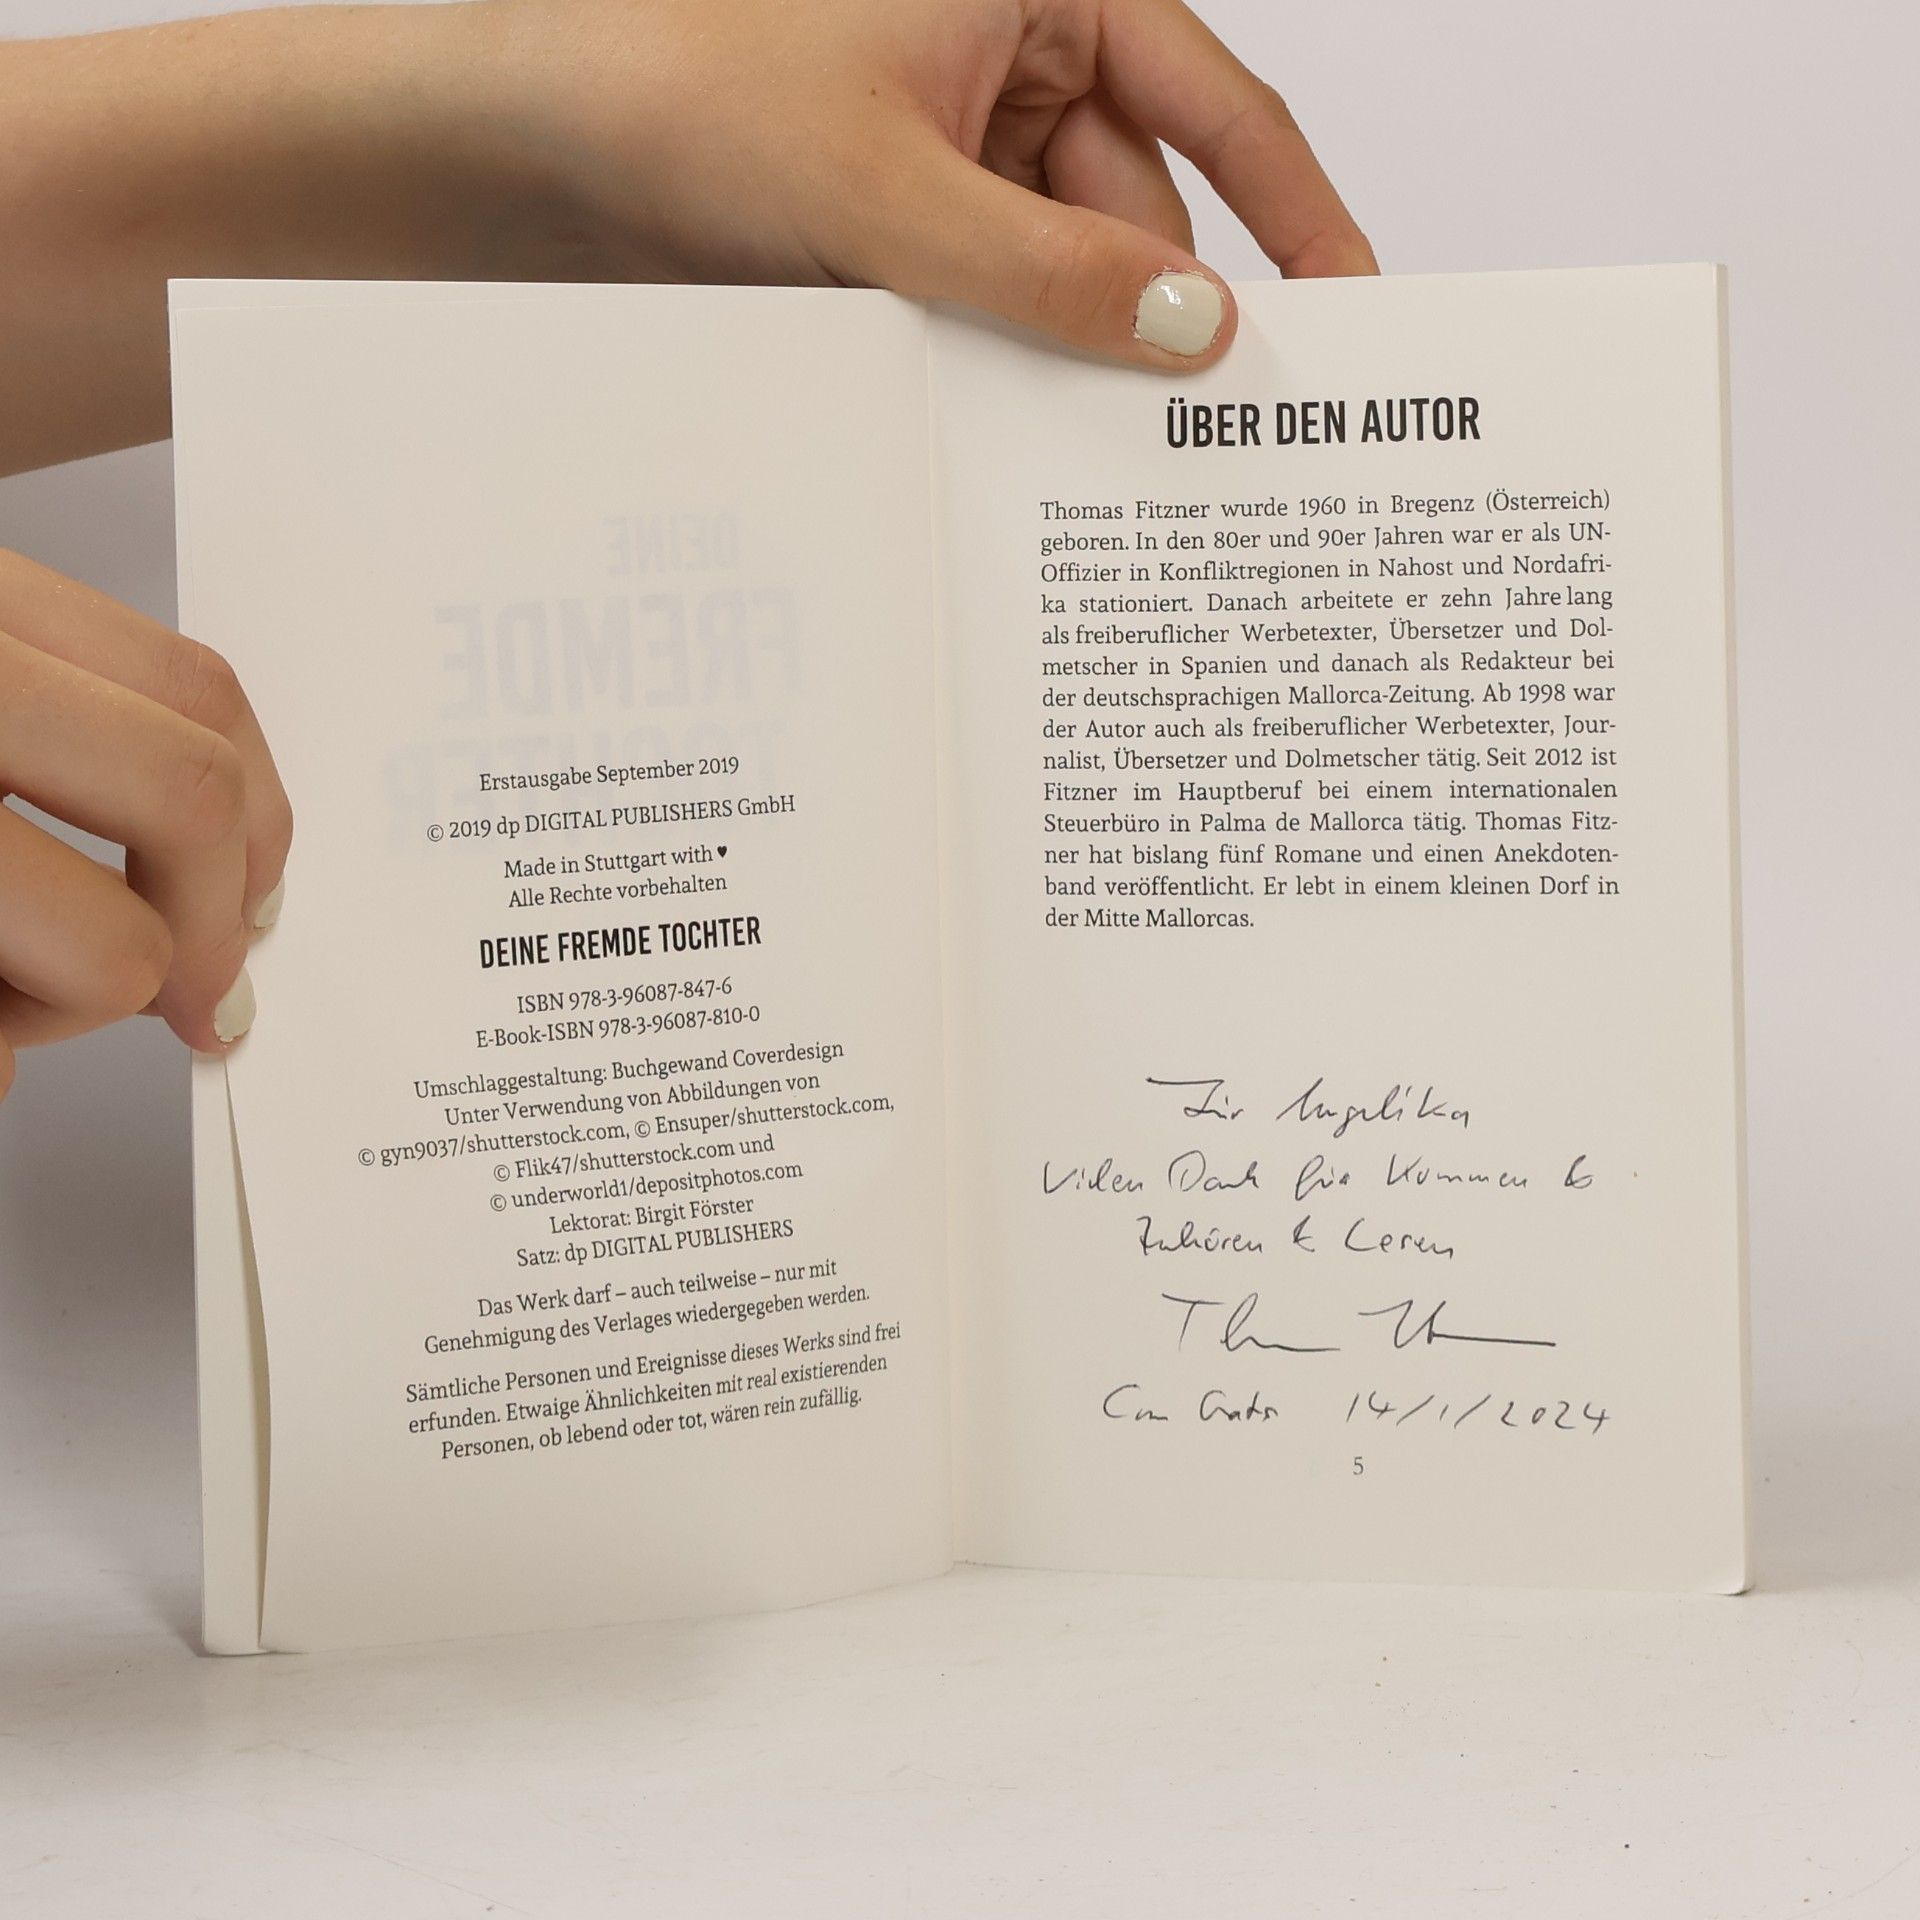 DEINE
FREMDE
TOCHTER
Erstausgabe September 2019
© 2019 dp DIGITAL PUBLISHERS GmbH
Made in Stuttgart with ♥
Alle Rechte vorbehalten
DEINE FREMDE TOCHTER
ISBN 978-3-96087-847-6
E-Book-ISBN 978-3-96087-810-0
Umschlaggestaltung: Buchgewand Coverdesign
Unter Verwendung von Abbildungen von
© gyn9037/shutterstock.com, © Ensuper/shutterstock.com,
© Flik47/shutterstock.com und
© underworld1/depositphotos.com
Lektorat: Birgit Förster
Satz: dp DIGITAL PUBLISHERS
Das Werk darf – auch teilweise – nur mit
Genehmigung des Verlages wiedergegeben werden.
Sämtliche Personen und Ereignisse dieses Werks sind frei
erfunden. Etwaige Ähnlichkeiten mit real existierenden
Personen, ob lebend oder tot, wären rein zufällig.
ÜBER DEN AUTOR
Thomas Fitzner wurde 1960 in Bregenz (Österreich)
geboren. In den 80er und 90er Jahren war er als UN-
Offizier in Konfliktregionen in Nahost und Nordafri-
ka stationiert. Danach arbeitete er zehn Jahre lang
als freiberuflicher Werbetexter, Übersetzer und Dol-
metscher in Spanien und danach als Redakteur bei
der deutschsprachigen Mallorca-Zeitung. Ab 1998 war
der Autor auch als freiberuflicher Werbetexter, Jour-
nalist, Übersetzer und Dolmetscher tätig. Seit 2012 ist
Fitzner im Hauptberuf bei einem internationalen
Steuerbüro in Palma de Mallorca tätig. Thomas Fitz-
ner hat bislang fünf Romane und einen Anekdoten-
band veröffentlicht. Er lebt in einem kleinen Dorf in
der Mitte Mallorcas.
Für Angelika
Vielen Dank fürs Kommen &
Zuhören & Lesen
14/1/2024
5